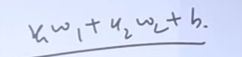 x₁w₁+x₂w₂+b.